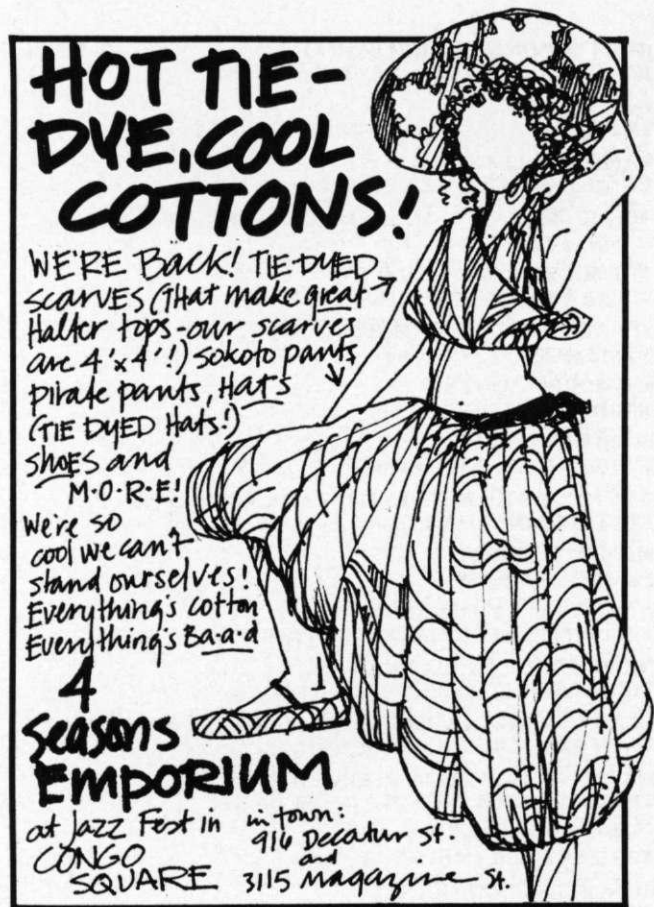 HOT TIE-
DYE, COOL
COTTONS!
WE'RE Back! TIE-DYED
scarves (THat make great
Halter tops - our scarves
are 4'x4'!) sokoto pants
pirate pants, Hats
(TIE DYED Hats!)
SHOES and
M·O·R·E!
We're so
cool we can't
stand ourselves!
Everything's cotton
Everything's Ba·a·d
4
Seasons
EMPORIUM
at Jazz Fest in
CONGO
SQUARE
in town:
916 Decatur St.
and
3115 Magazine St.